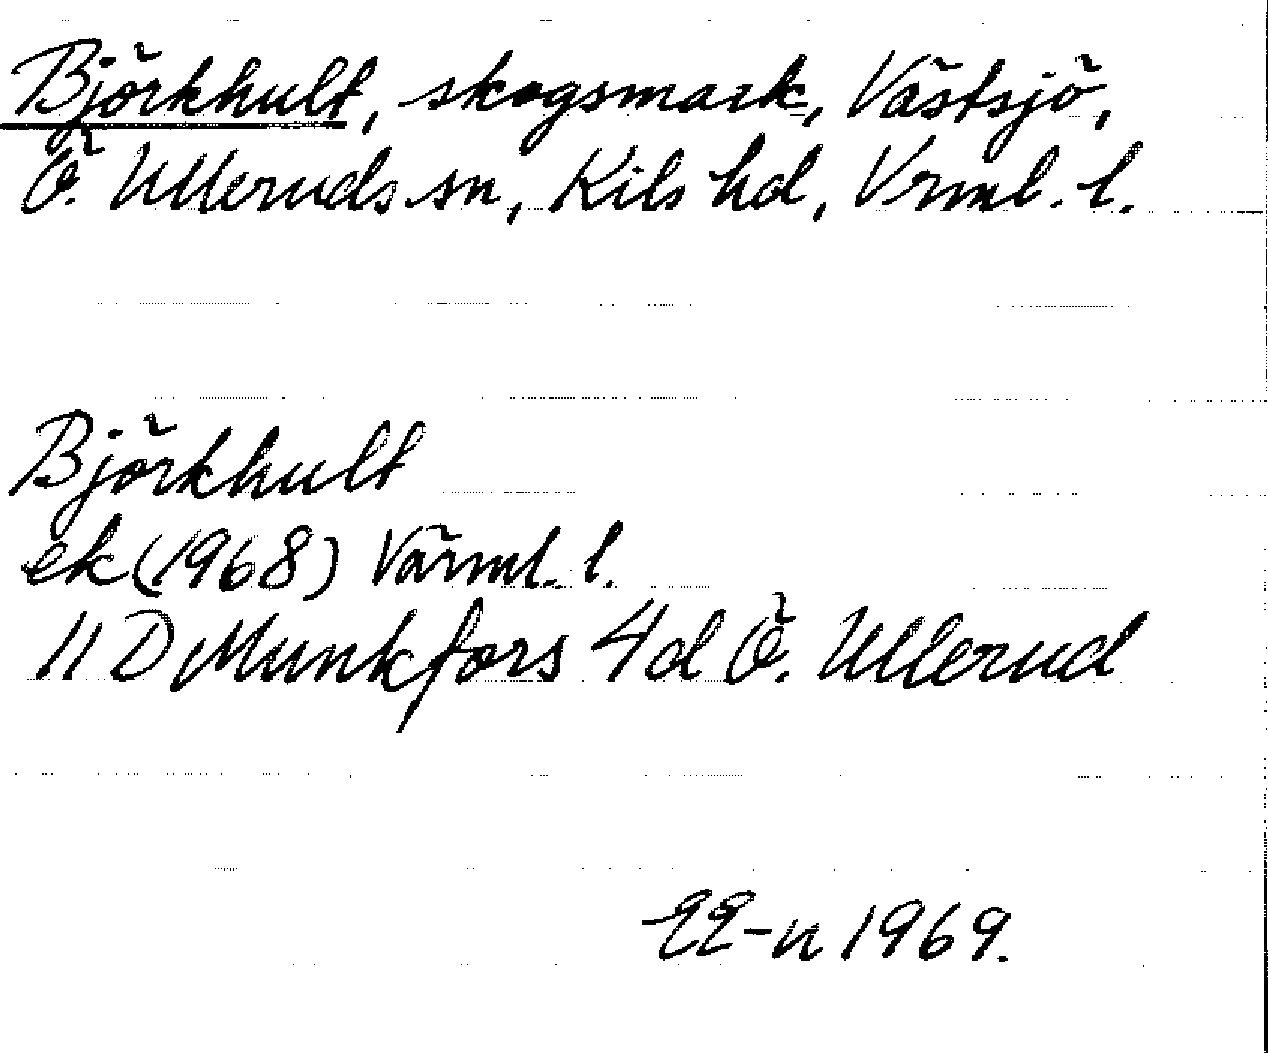 Björkhult, skogsmark, Västsjö,
Ö. Ulleruds sn, Kils hd, Vrml. l.
Björkhult
ek (1968) Värml. l.
11 D Munkfors 4d Ö. Ullerud
EE-n 1969.